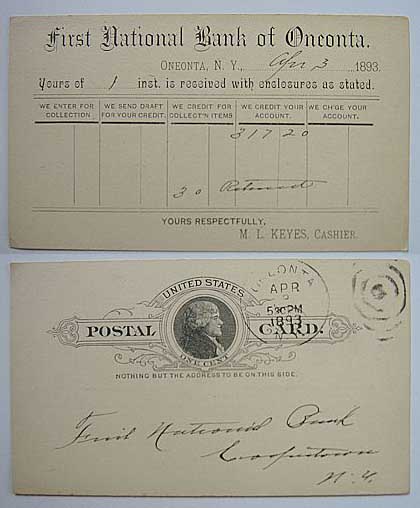 First National Bank of Oneonta.
ONEONTA, N. Y., Apr 3 1893.
Yours of 1 inst. is received with enclosures as stated.
WE ENTER FOR COLLECTION WE SEND DRAFT FOR YOUR CREDIT. WE CREDIT FOR COLLECT'N ITEMS WE CREDIT YOUR ACCOUNT. WE CH'GE YOUR ACCOUNT.
317 20
30 Returned
YOURS RESPECTFULLY,
M. L. KEYES, CASHIER.
UNITED STATES
POSTAL CARD.
ONE CENT
NOTHING BUT THE ADDRESS TO BE ON THIS SIDE.
ONEONTA
APR
3
530PM
1893
N.Y.
First National Bank
Cooperstown
N. Y.